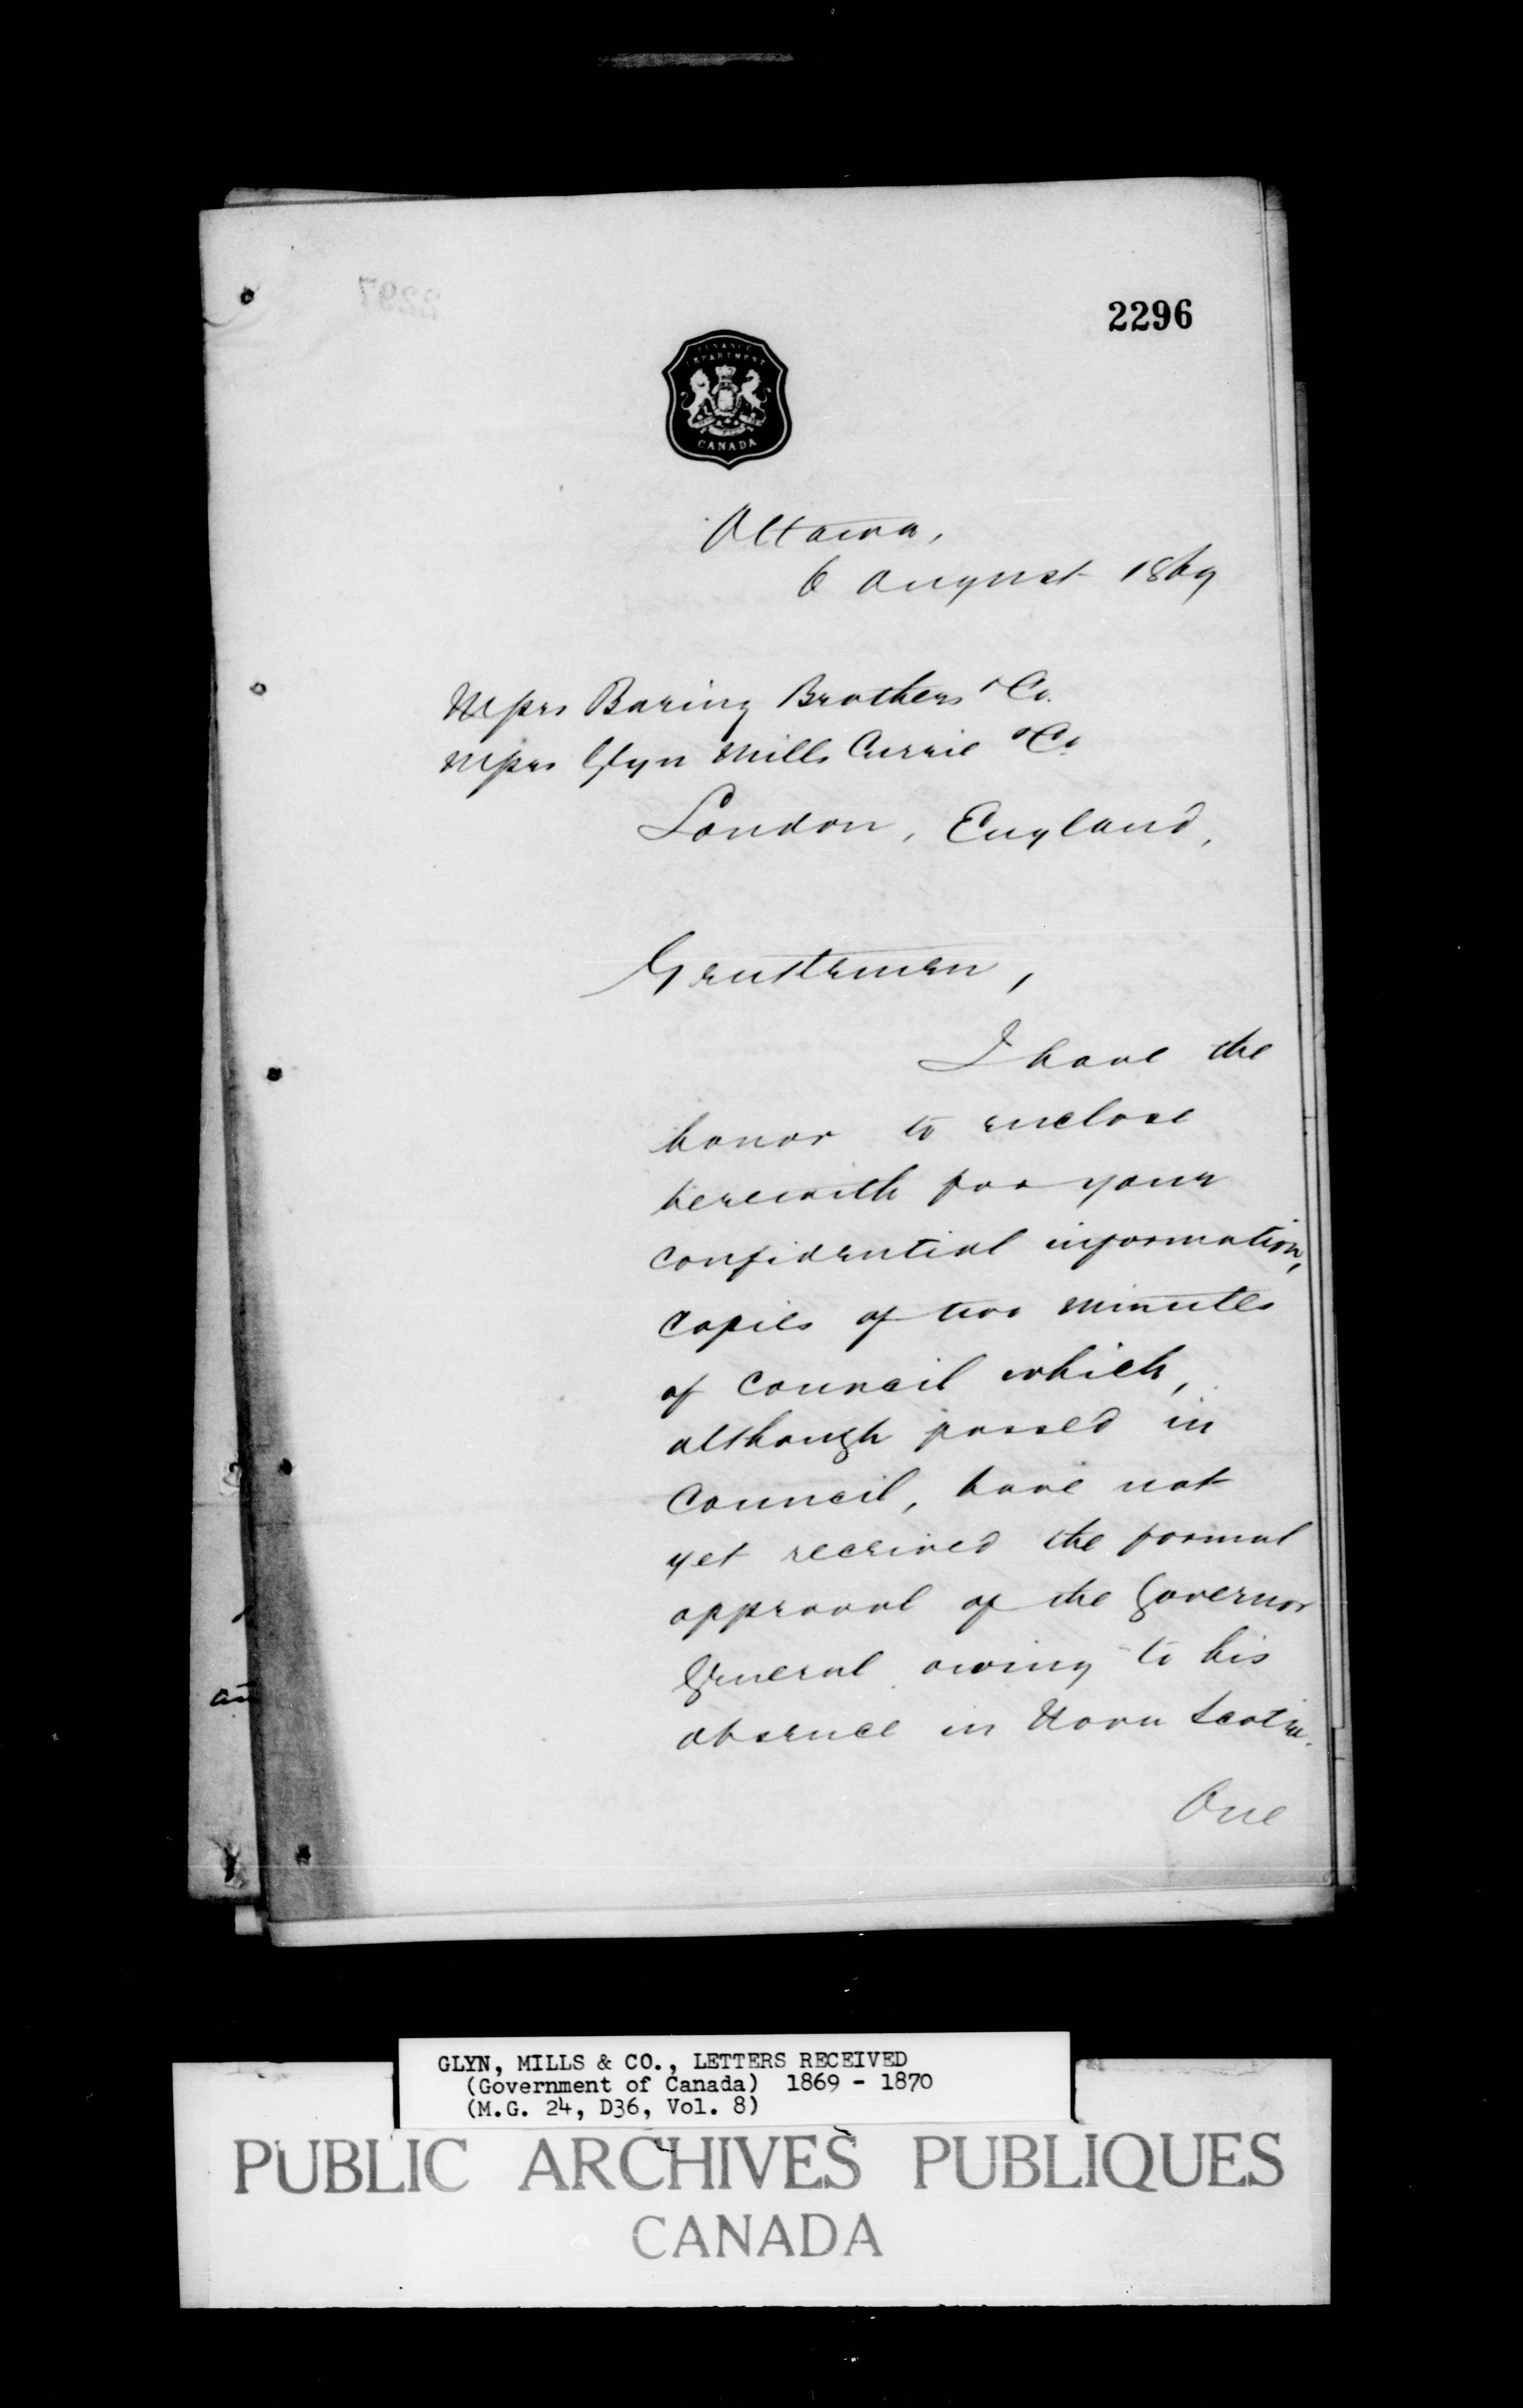 2296
FINANCE
DEPARTMENT
CANADA
Ottawa,
6 August 1869
Messrs Baring Brothers & Co.
Messrs Glyn Mills Currie & Co
London, England,
Gentlemen,
I have the
honor to enclose
herewith for your
confidential information,
copies of two minutes
of Council which,
although passed in
Council, have not
yet received the formal
approval of the Governor
General owing to his
absence in Nova Scotia.
One
GLYN, MILLS & CO., LETTERS RECEIVED
(Government of Canada) 1869 - 1870
(M.G. 24, D36, Vol. 8)
PUBLIC ARCHIVES PUBLIQUES
CANADA